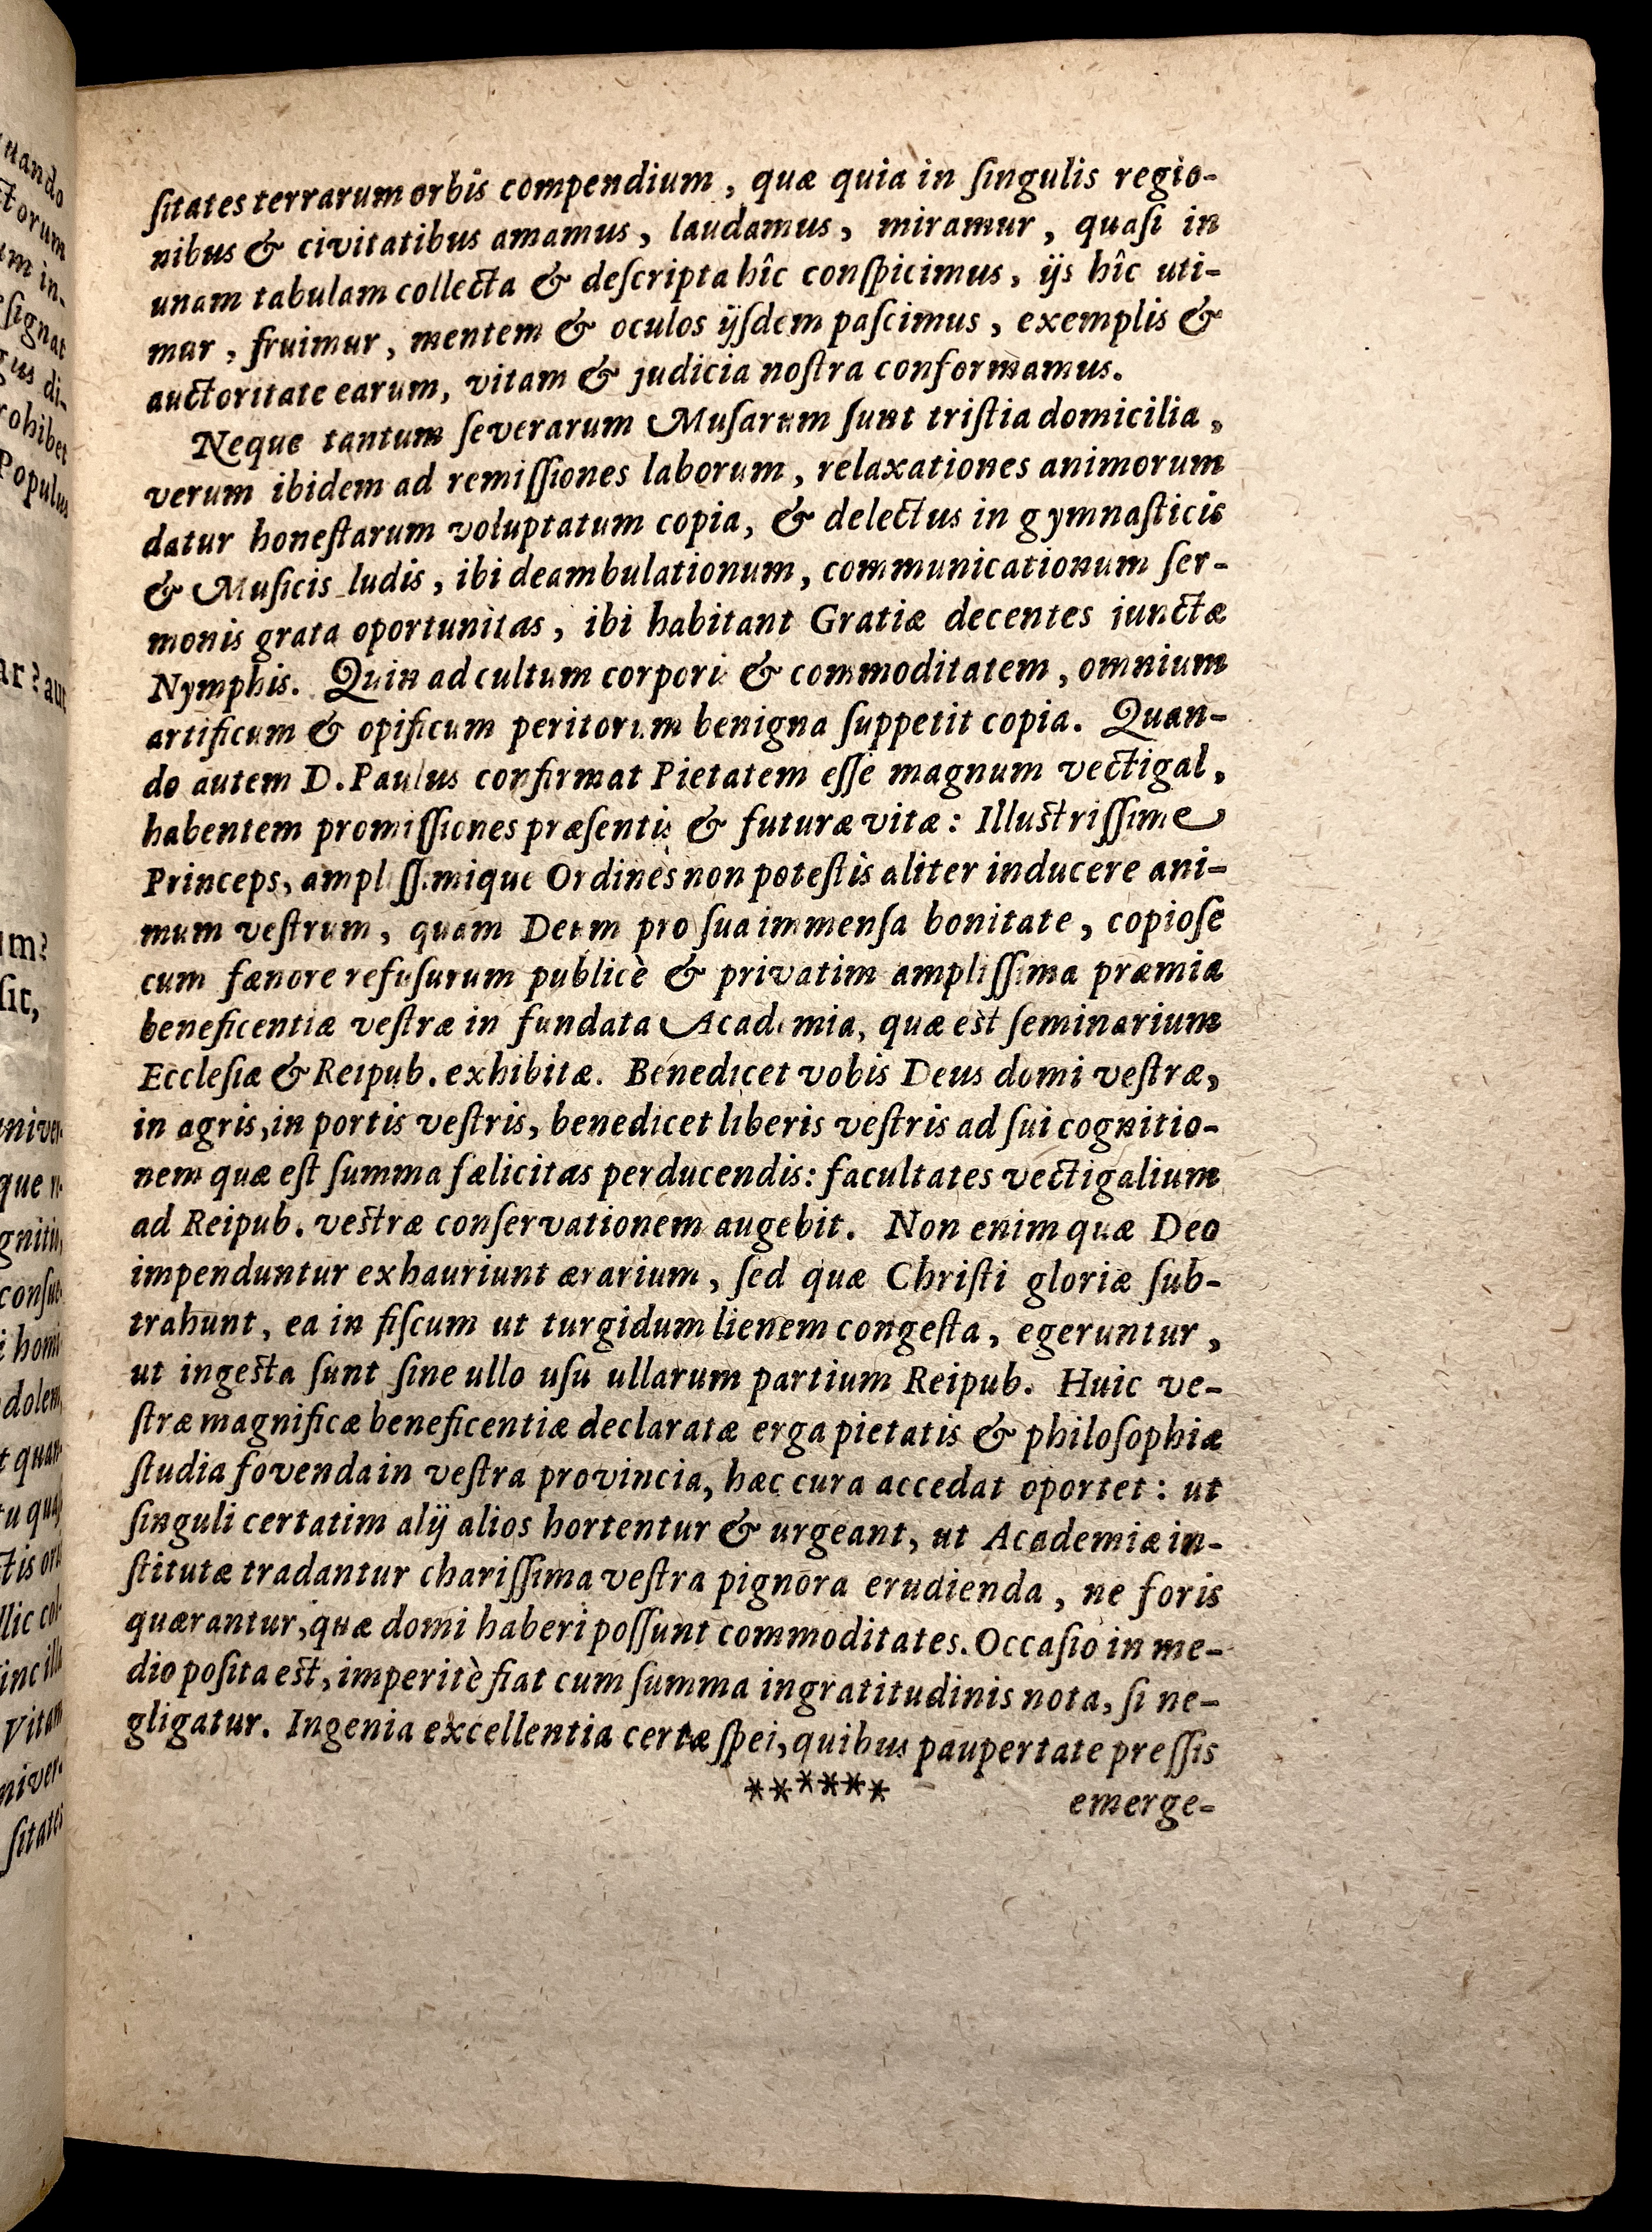 uando
ctorum
um in-
ſignat
gus di-
rohibet
Populus
ar? aut
um?
ſit,
univer-
que
conſue-
homi-
dolem,
quan-
Vitam
niver-
ſitates
ſitates terrarum orbis compendium, quæ quia in ſingulis regio-
nibus & civitatibus amamus, laudamus, miramur, quaſi in
unam tabulam collecta & deſcripta hîc conſpicimus, ijs hîc uti-
mur, fruimur, mentem & oculos ijſdem paſcimus, exemplis &
auctoritate earum, vitam & judicia noſtra conformamus.
Neque tantum ſeverarum Muſarum ſunt triſtia domicilia,
verum ibidem ad remiſſiones laborum, relaxationes animorum
datur honeſtarum voluptatum copia, & delectus in gymnaſticis
& Muſicis ludis, ibi deambulationum, communicationum ſer-
monis grata oportunitas, ibi habitant Gratiæ decentes iunctæ
Nymphis. Quin ad cultum corpori & commoditatem, omnium
artificum & opificum peritorum benigna ſuppetit copia. Quan-
do autem D. Paulus confirmat Pietatem eſſe magnum vectigal,
habentem promiſſiones præſentis & futuræ vitæ: Illuſtriſſime
Princeps, ampliſſimique Ordines non poteſtis aliter inducere ani-
mum veſtrum, quam Deum pro ſua immenſa bonitate, copioſe
cum fænore refuſurum publicè & privatim ampliſſima præmia
beneficentiæ veſtræ in fundata Academia, quæ eſt ſeminarium
Eccleſiæ & Reipub. exhibitæ. Benedicet vobis Deus domi veſtræ,
in agris, in portis veſtris, benedicet liberis veſtris ad ſui cognitio-
nem quæ eſt ſumma fælicitas perducendis: facultates vectigalium
ad Reipub. veſtræ conſervationem augebit. Non enim quæ Deo
impenduntur exhauriunt ærarium, ſed quæ Chriſti gloriæ ſub-
trahunt, ea in fiſcum ut turgidum lienem congeſta, egeruntur,
ut ingeſta ſunt ſine ullo uſu ullarum partium Reipub. Huic ve-
ſtræ magnificæ beneficentiæ declaratæ erga pietatis & philoſophiæ
ſtudia fovenda in veſtra provincia, hæc cura accedat oportet: ut
ſinguli certatim alij alios hortentur & urgeant, ut Academiæ in-
ſtitutæ tradantur chariſſima veſtra pignora erudienda, ne foris
quærantur, quæ domi haberi poſſunt commoditates. Occaſio in me-
dio poſita eſt, imperitè fiat cum ſumma ingratitudinis nota, ſi ne-
gligatur. Ingenia excellentia certæ ſpei, quibus paupertate preſſis
******
emerge-